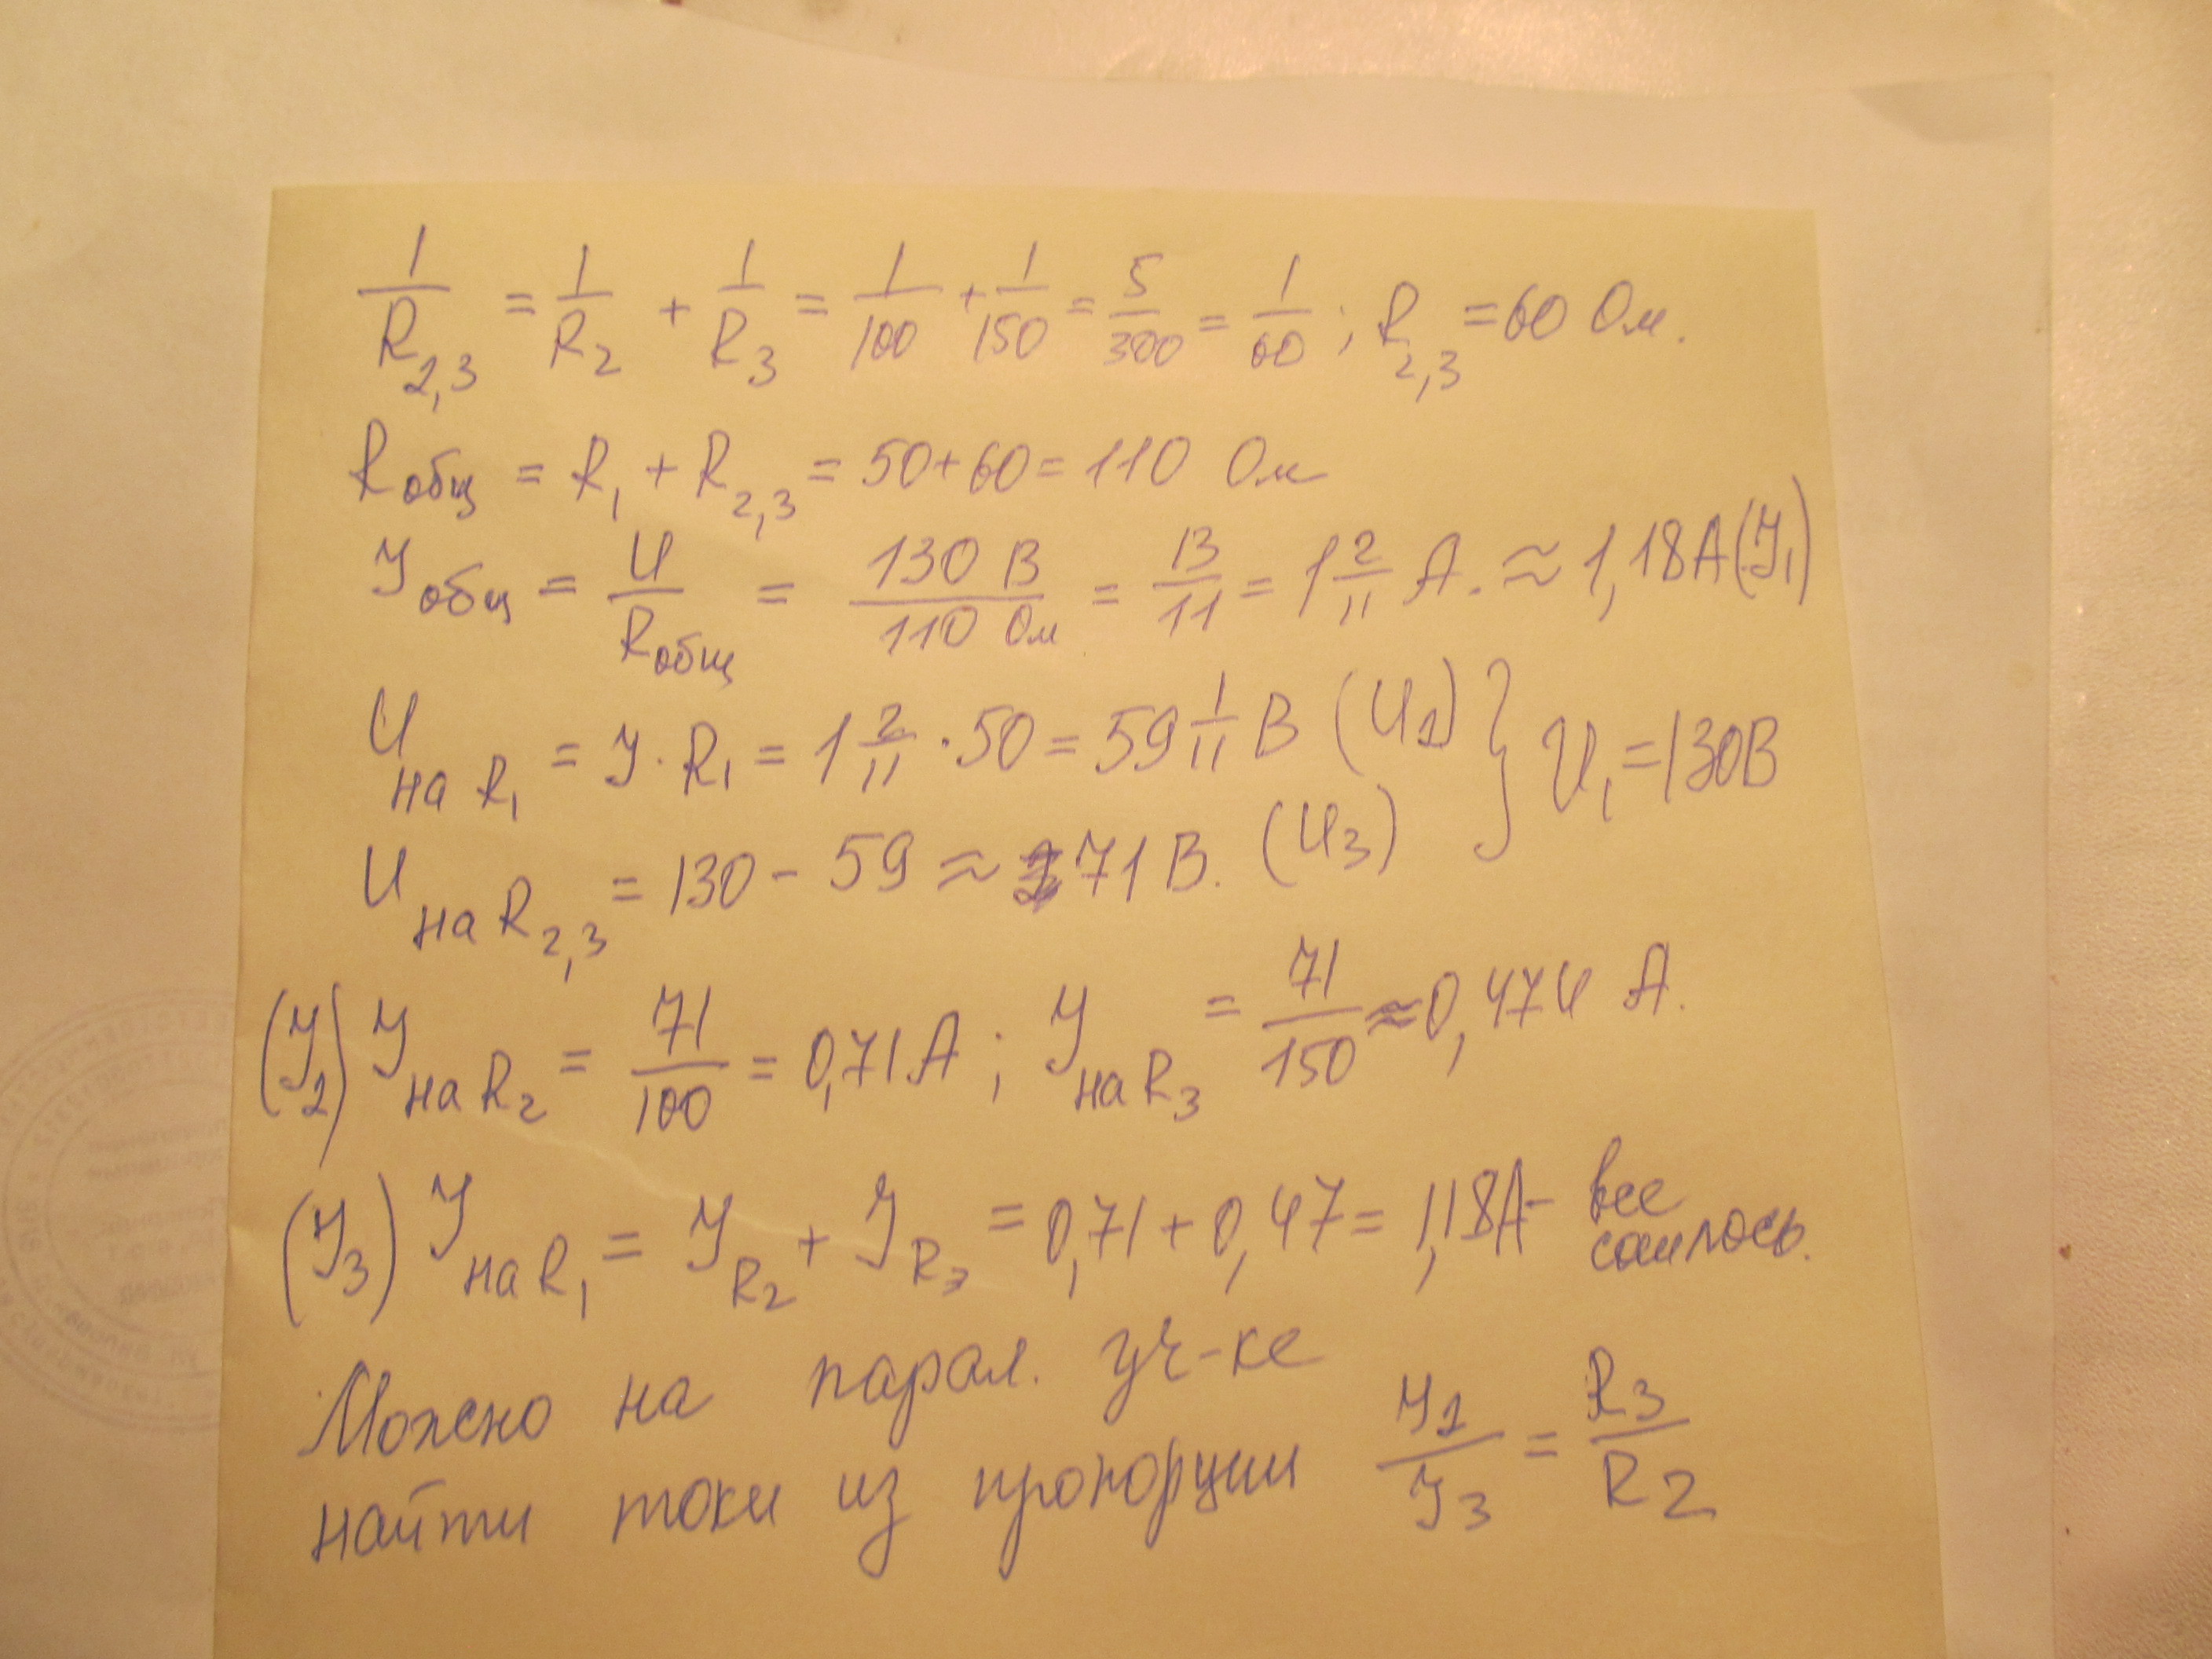 1/R2,3 = 1/R2 + 1/R3 = 1/100 + 1/150 = 5/300 = 1/60 ; R2,3 = 60 Ом.
Rобщ = R1 + R2,3 = 50 + 60 = 110 Ом
Jобщ = U/Rобщ = 130 В/110 Ом = 13/11 = 1 2/11 А. ≈ 1,18А (J1)
U на R1 = J · R1 = 1 2/11 · 50 = 59 1/11 В (U2) } U1 = 130В
U на R2,3 = 130 - 59 ≈ 71 В. (U3)
(J2) J на R2 = 71/100 = 0,71 А ; J на R3 = 71/150 ≈ 0,474 А.
(J3) J на R1 = JR2 + JR3 = 0,71 + 0,47 = 1,18А - все сошлось.
Можно на парал. уч-ке
найти токи из пропорции J2/J3 = R3/R2